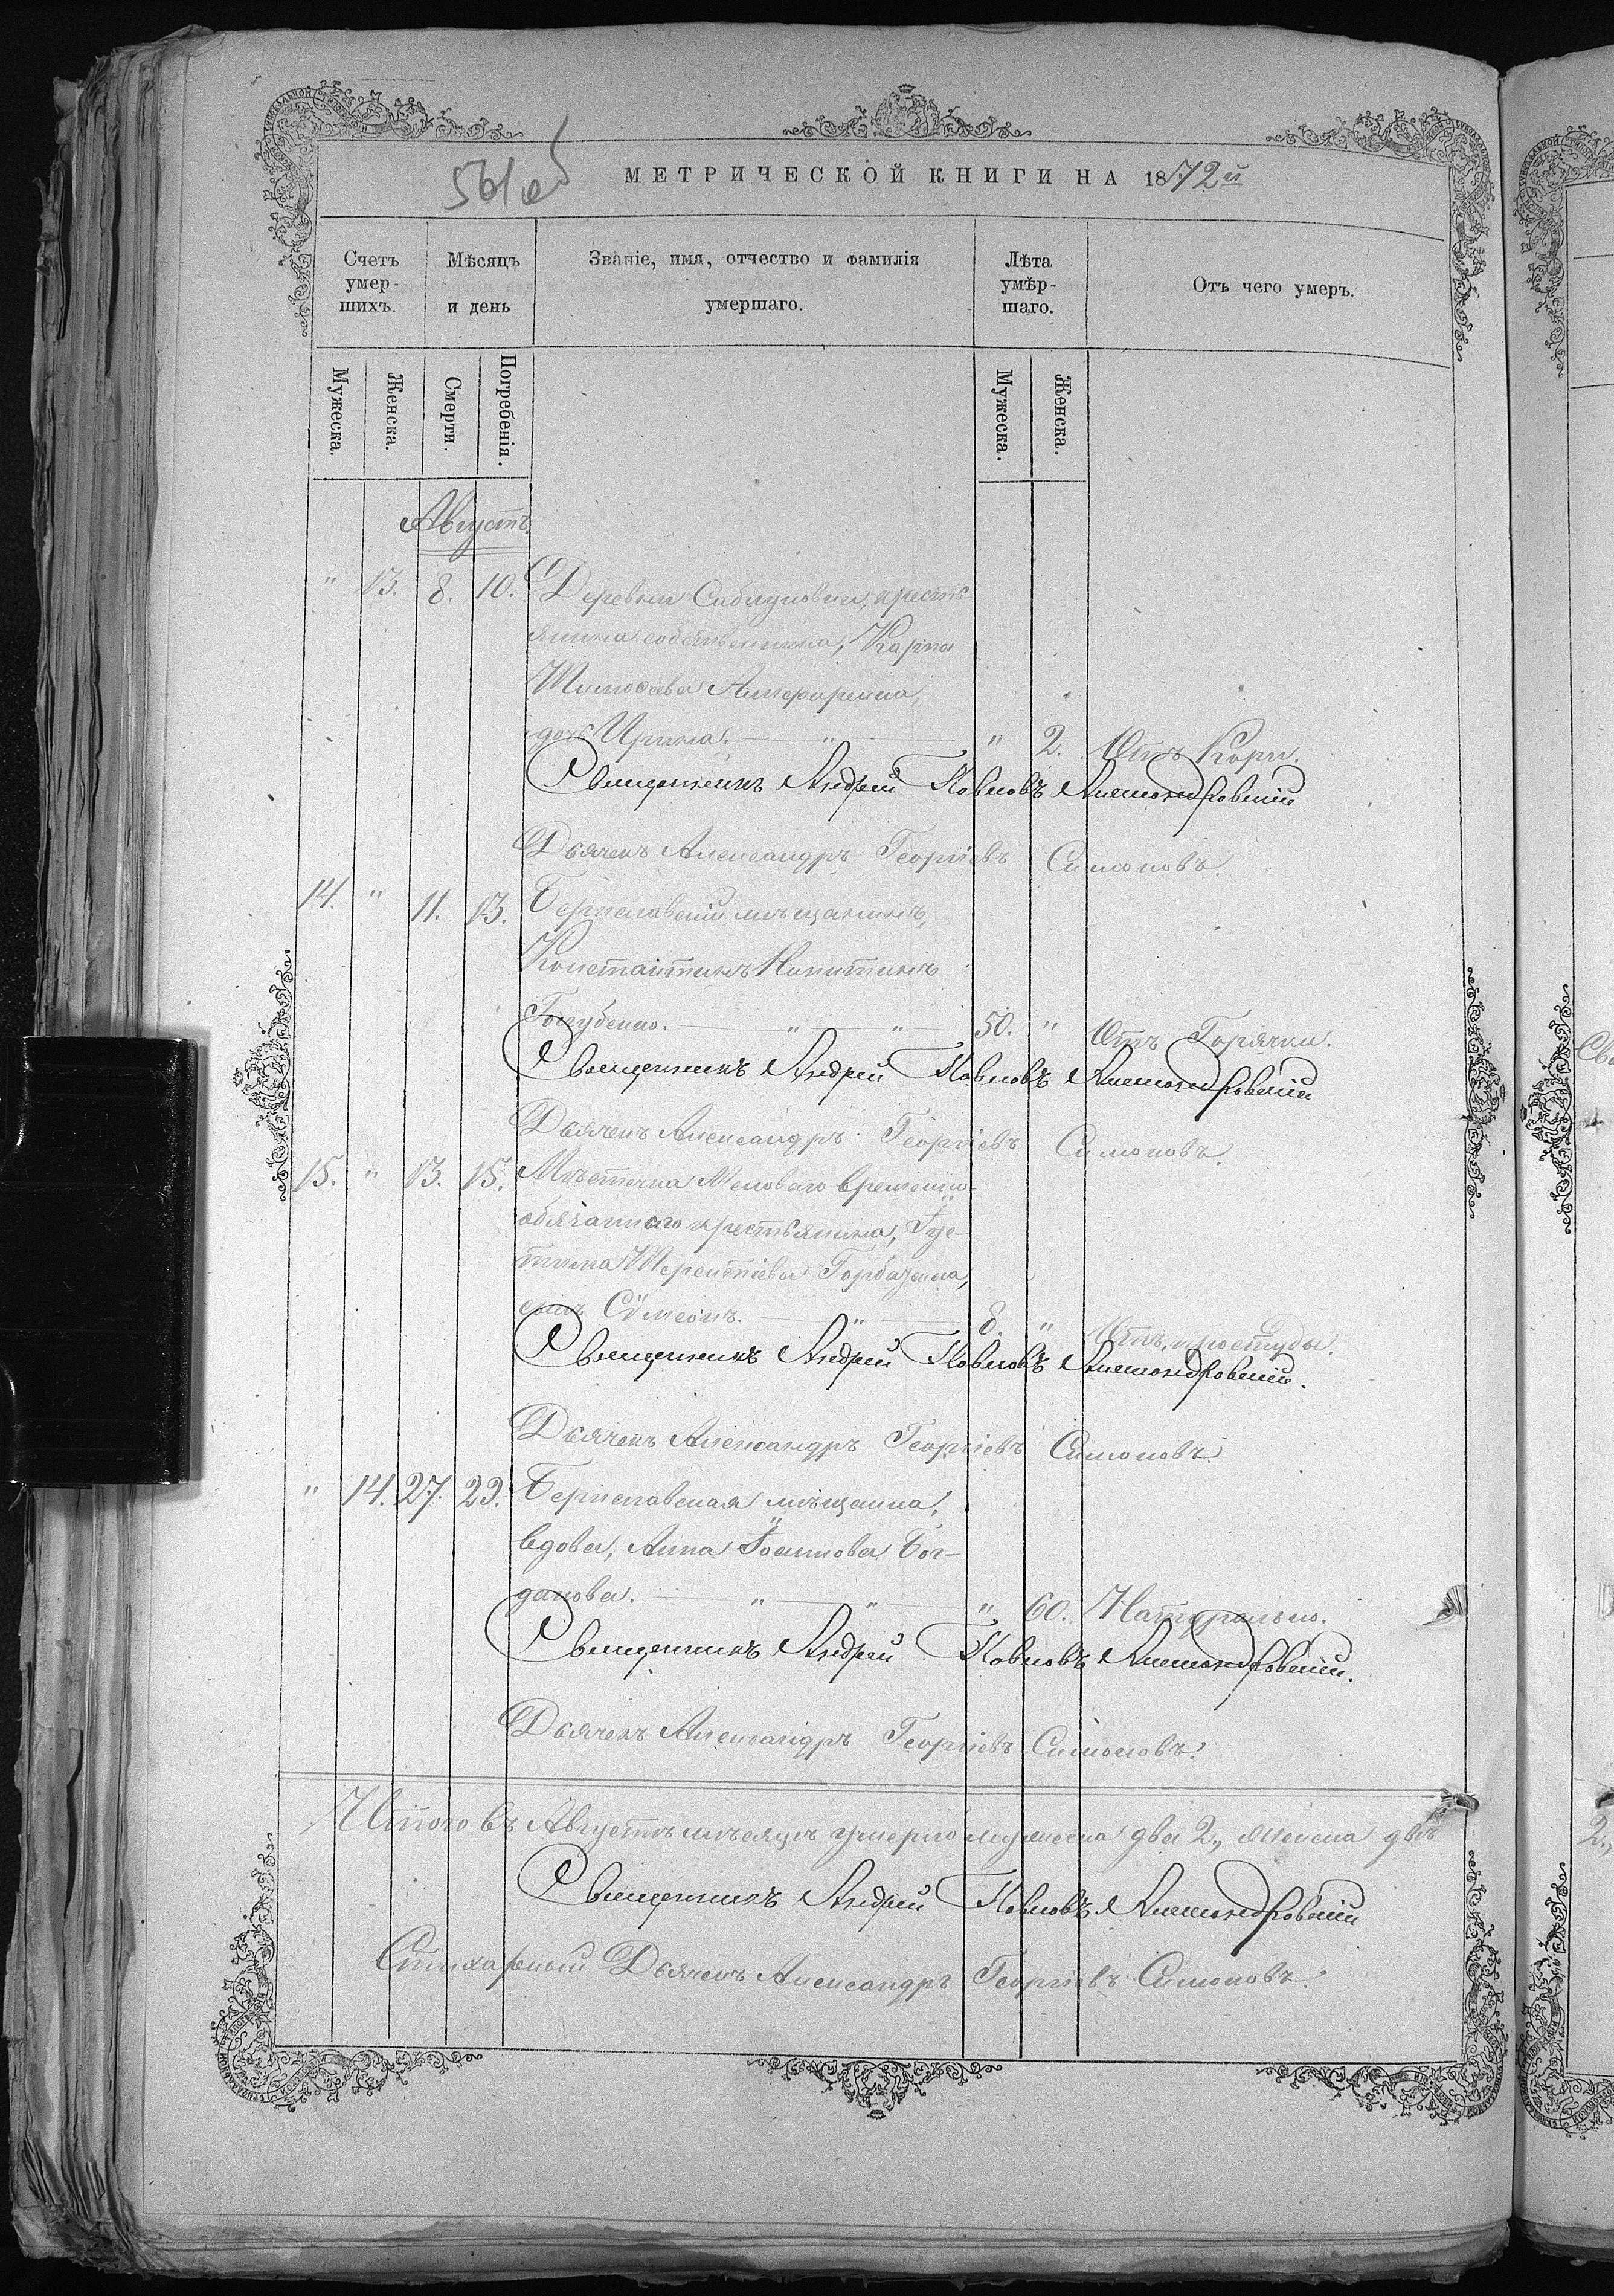 561 об
МЕТРИЧЕСКОЙ КНИГИ НА 1872й
Счетъ умер-шихъ.
Мѣсяцъ и день
Званіе, имя, отчество и фамилія умершаго.
Лѣта умѣр-шаго.
Отъ чего умеръ.
Мужеска.
Женска.
Смерти.
Погребенія.
Мужеска.
Женска.
Августъ
" 13. 8. 10. Деревни Саблуковки, кресть-
янина собственника, Карпа
Тимоѳеева
дочь Ирина. " " 2. Отъ Кори.
Священникъ Андрей Павловъ Александровскій
Дьячекъ Александръ Георгіевъ Симоновъ.
14. " 11. 13. Бериславскій мѣщанинъ,
Константинъ Никитинъ
Голубенко. " " 50. " Отъ Горячки.
Священникъ Андрей Павловъ Александровскій
Дьячекъ Александръ Георгіевъ Симоновъ.
15. " 13. 15. Мѣстечка Меловаго временно-
обязаннаго крестьянина, Іус-
тина Терентіева
сынъ Сѵмеонъ. " 8. " Отъ простуды.
Священникъ Андрей Павловъ Александровскій.
Дьячекъ Александръ Георгіевъ Симоновъ.
" 14. 27. 29. Бериславская мѣщанка,
вдова, Анна Іоаннова Бог-
данова. " " " 60. Натурально.
Священникъ Андрей Павловъ Александровскій.
Дьячекъ Александръ Георгіевъ Симоновъ.
Итого въ Августѣ мѣсяцѣ умерло мужеска два 2., женска двѣ
Священникъ Андрей Павловъ Александровскій
Стихарный Дьячекъ Александръ Георгіевъ Симоновъ.